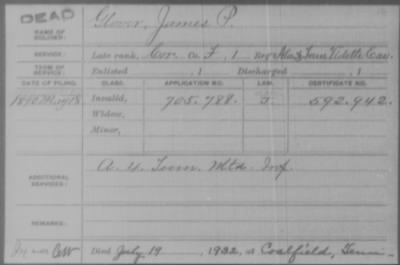 DEAD
NAME OF SOLDIER:
Glover, James P.
SERVICE:
Late rank, Cor. Co. F, 1 Reg't Ala & Tenn Vidette Cav.
TERM OF SERVICE:
Enlisted , 1 Discharged , 1
DATE OF FILING. CLASS. APPLICATION NO. LAW. CERTIFICATE NO.
1890 Invalid, 705.788. J 592.942.
Widow,
Minor,
ADDITIONAL SERVICES:
A. 4 Tenn. Mtd. Inf.
REMARKS:
Died July 19, 1932, at Coalfield, Tenn.